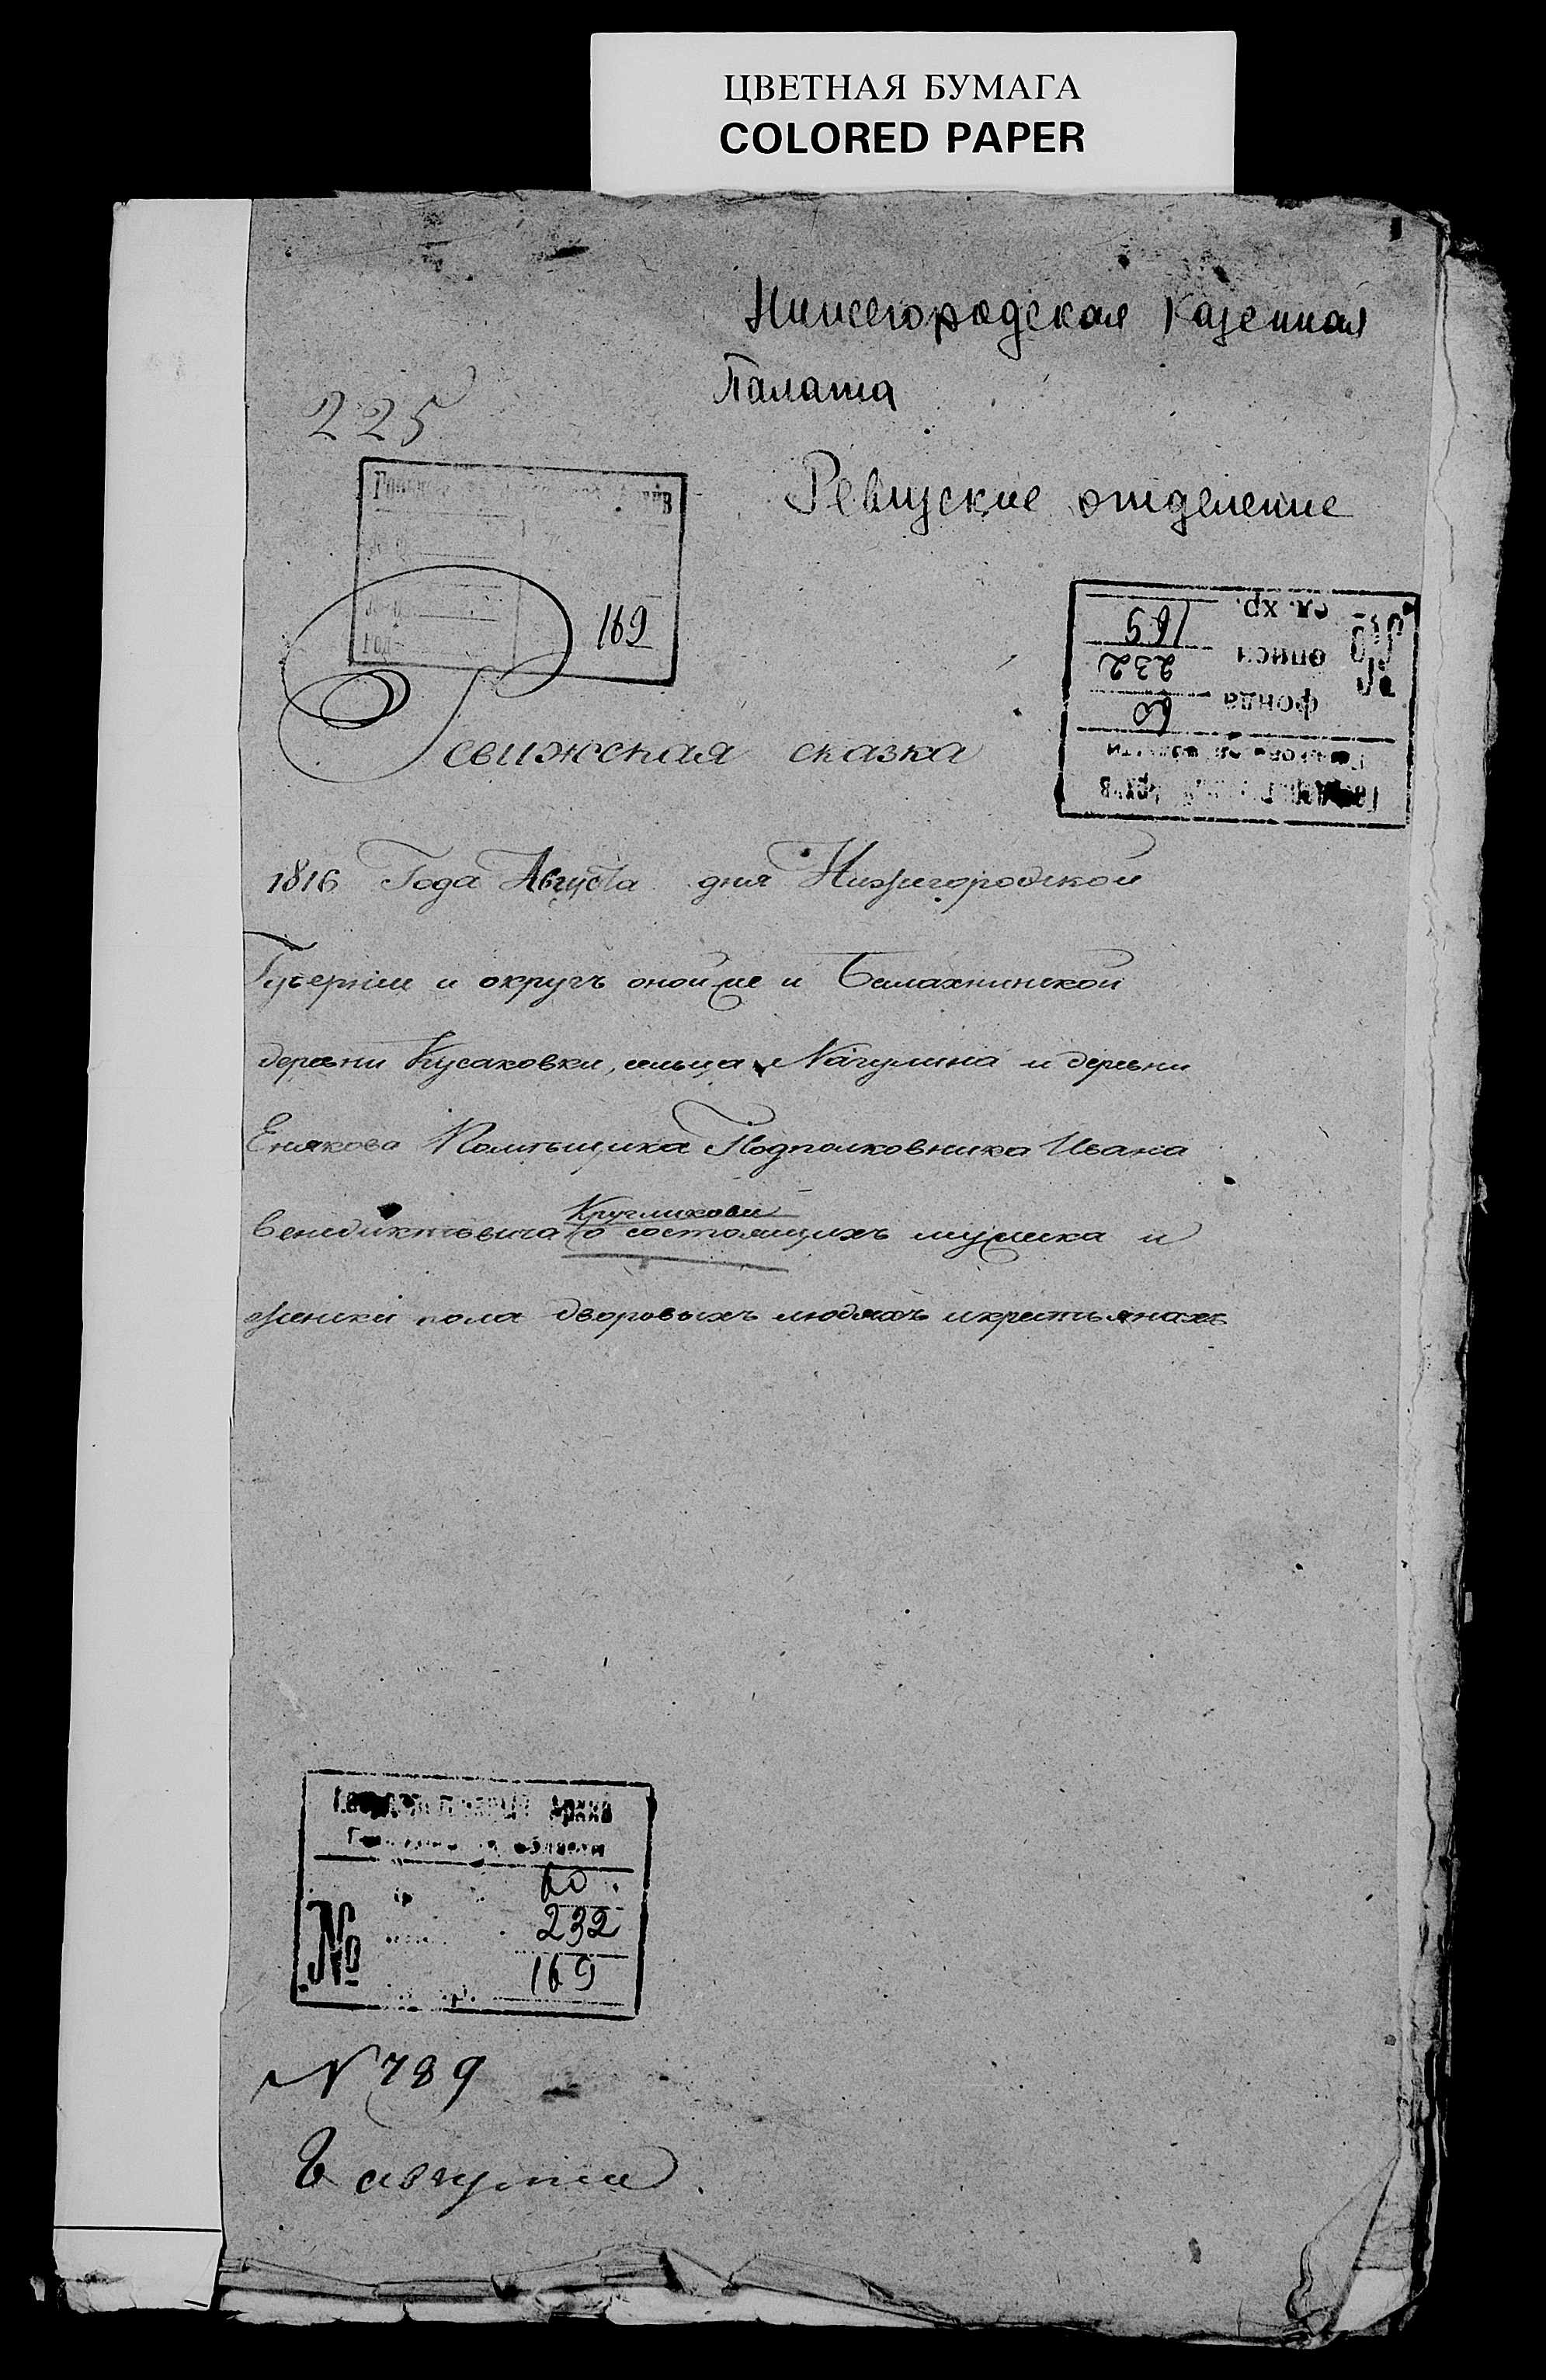 ЦВЕТНАЯ БУМАГА
COLORED PAPER
Нижегородская Казенная
Палата
225
Ревизские отделение
169
ед. хр. 169
описи 232
фонда 60
№
Ревижская сказка
1816 Года Августа дня Нижегородской
Губернiи и округъ оной же и Балахнинской
деревни Кусаковки, сельца Нагулина и деревни
Енякова Помѣщика Подполковника Ивана
Кругликова
Венедиктовича о состоящихъ мужска и
женска пола дворовыхъ людяхъ и крестьянахъ
архив
области
60
232
№
169
N 789
августа